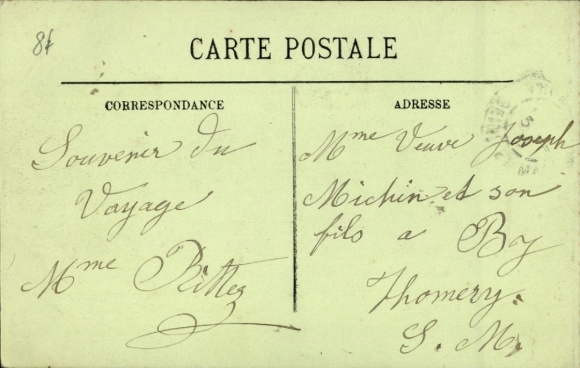 84
CARTE POSTALE
CORRESPONDANCE
Souvenir du
Voyage
Mme Ritter
ADRESSE
Mme Veuve Joseph
Michin et son
fils a By
Thomery.
S. M.